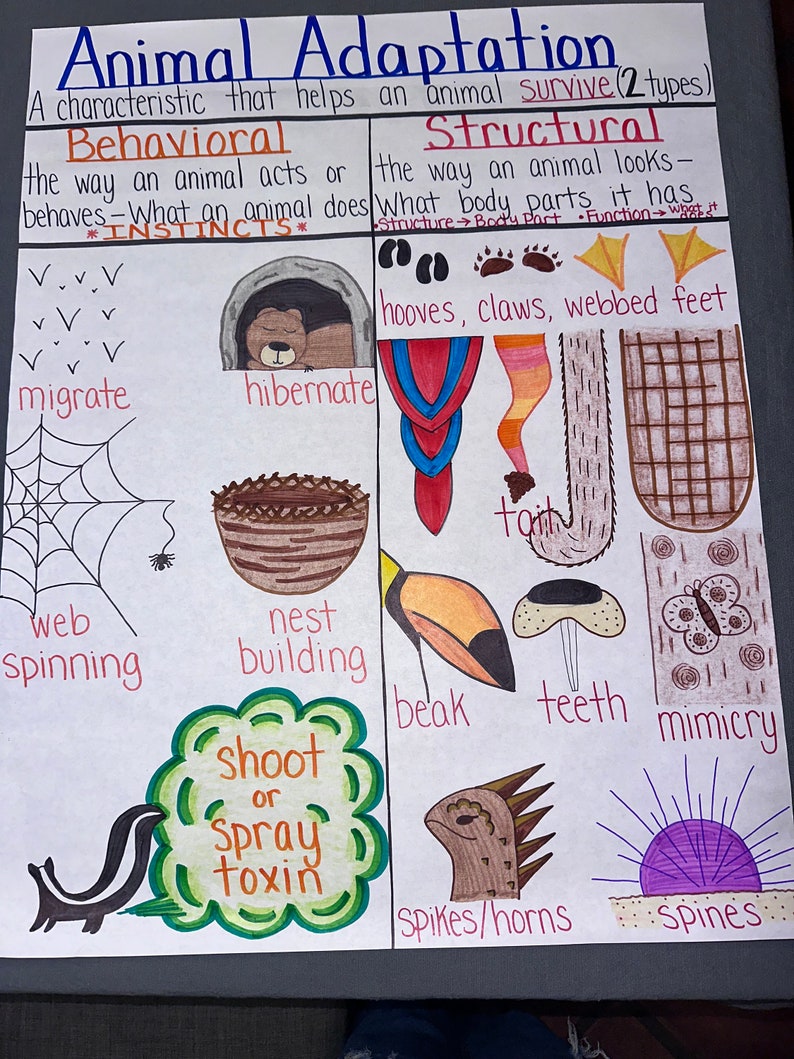 Animal Adaptation
A characteristic that helps an animal survive (2 types)
Behavioral
the way an animal acts or
behaves – What an animal does
*INSTINCTS*
migrate
hibernate
web
spinning
nest
building
shoot
or
spray
toxin
Structural
the way an animal looks –
What body parts it has
•Structure → Body Part •Function → What it
does
hooves, claws, webbed feet
tail
beak
teeth
mimicry
spikes/horns
spines